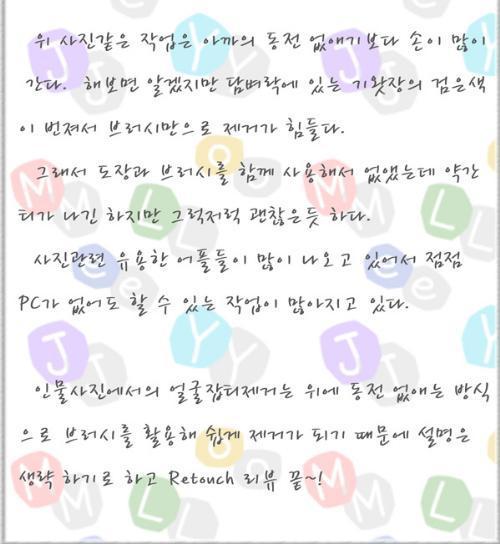 위 사진같은 작업은 아까의 동전 없애기보다 손이 많이
간다. 해보면 알겠지만 담벼락에 있는 기왓장의 검은색
이 번져서 브러시만으로 제거가 힘들다.
그래서 도장과 브러시를 함께 사용해서 없앴는데 약간
티가 나긴 하지만 그럭저럭 괜찮은듯 하다.
사진관련 유용한 어플들이 많이 나오고 있어서 점점
PC가 없어도 할 수 있는 작업이 많아지고 있다.
인물사진에서의 얼굴잡티제거는 위에 동전 없애는 방식
으로 브러시를 활용해 쉽게 제거가 되기 때문에 설명은
생략 하기로 하고 Retouch 리뷰 끝~!